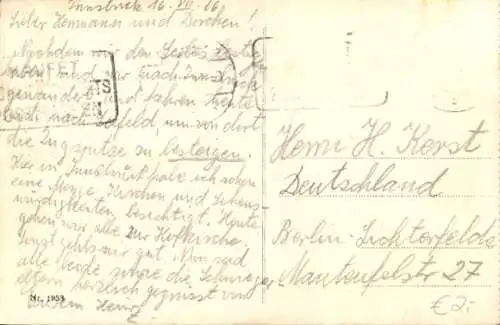 Innsbruck 16. VII. 26
Lieber Hermann und Dorchen!
Nachdem wir den
sind wir nach Innsbruck
gewandert und fahren heute
noch nach Seefeld, um von dort
die Zugspitze zu besteigen.
Hier in Innsbruck habe ich schon
eine Menge Kirchen und Sehens-
würdigkeiten besichtigt. Heute
gehen wir alle zur Hofkirche.
Sonst geht's mir gut. Nun seid
alle beide sowie die Schwieger
eltern herzlich gegrüsst von
Eurem Heinz
Nr. 1953
Herrn H. Kerst
Deutschland
Berlin-Lichterfelde
Manteufelstr 27
€2,-